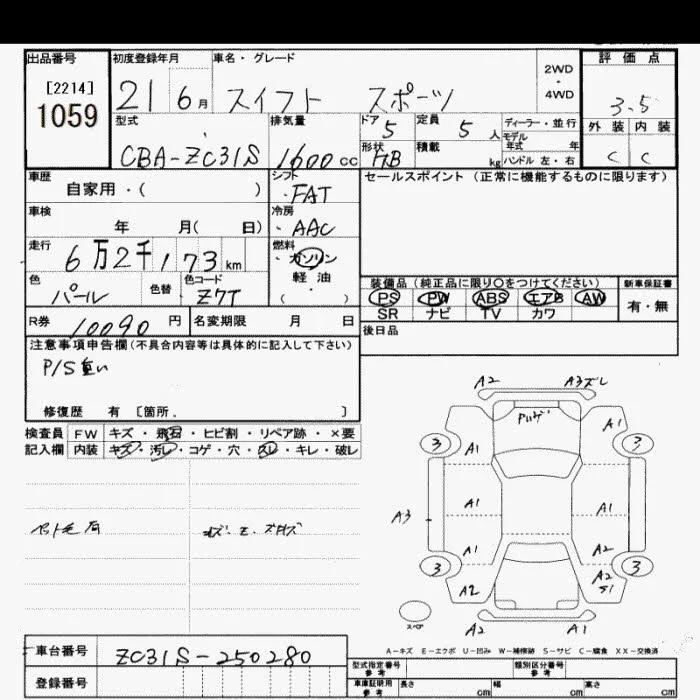 出品番号 初度登録年月 車名・グレード 2WD ・ 4WD 評価点
[2214]
1059
21 6月 スイフト スポーツ 3.5
型式 排気量 ドア 5 定員 5人 ディーラー・並行 外装 内装
モデル年式 年
CBA-ZC31S 1600cc 形状 HB 積載 kg ハンドル 左・右 C C
車歴 シフト セールスポイント(正常に機能するものに限ります)
自家用・( ) ・FAT
車検 冷房
年 月( 日) ・AAC
走行 燃料
6万2千173km ・ガソリン
軽油
・( )
色 色替 色コード 装備品(純正品に限り〇をつけてください) 新車保証書
パール Z7T PS PW ABS エアB AW 有・無
SR ナビ TV カワ
R券 10090円 名変期限 月 日 後日品
注意事項申告欄(不具合内容等は具体的に記入して下さい)
P/S重い
修復歴 有 [箇所. ]
検査員 FW キズ・飛石・ヒビ割・リペア跡・×要
記入欄 内装 キズ・汚レ・コゲ・穴・スレ・キレ・破レ
A2 A3ズレ
A1
3 3
A1
A1 A1
A3
A1 A2
3 3
A2 A2
S1
スペア
A2 A1
A-キズ E-エクボ U-凹み W-補修跡 S-サビ C-腐食 XX-交換済
車台番号 ZC31S-250280 型式指定番号 参考 類別区分番号 参考
登録番号 車庫証明用 参考 長さ cm 幅 cm 高さ cm